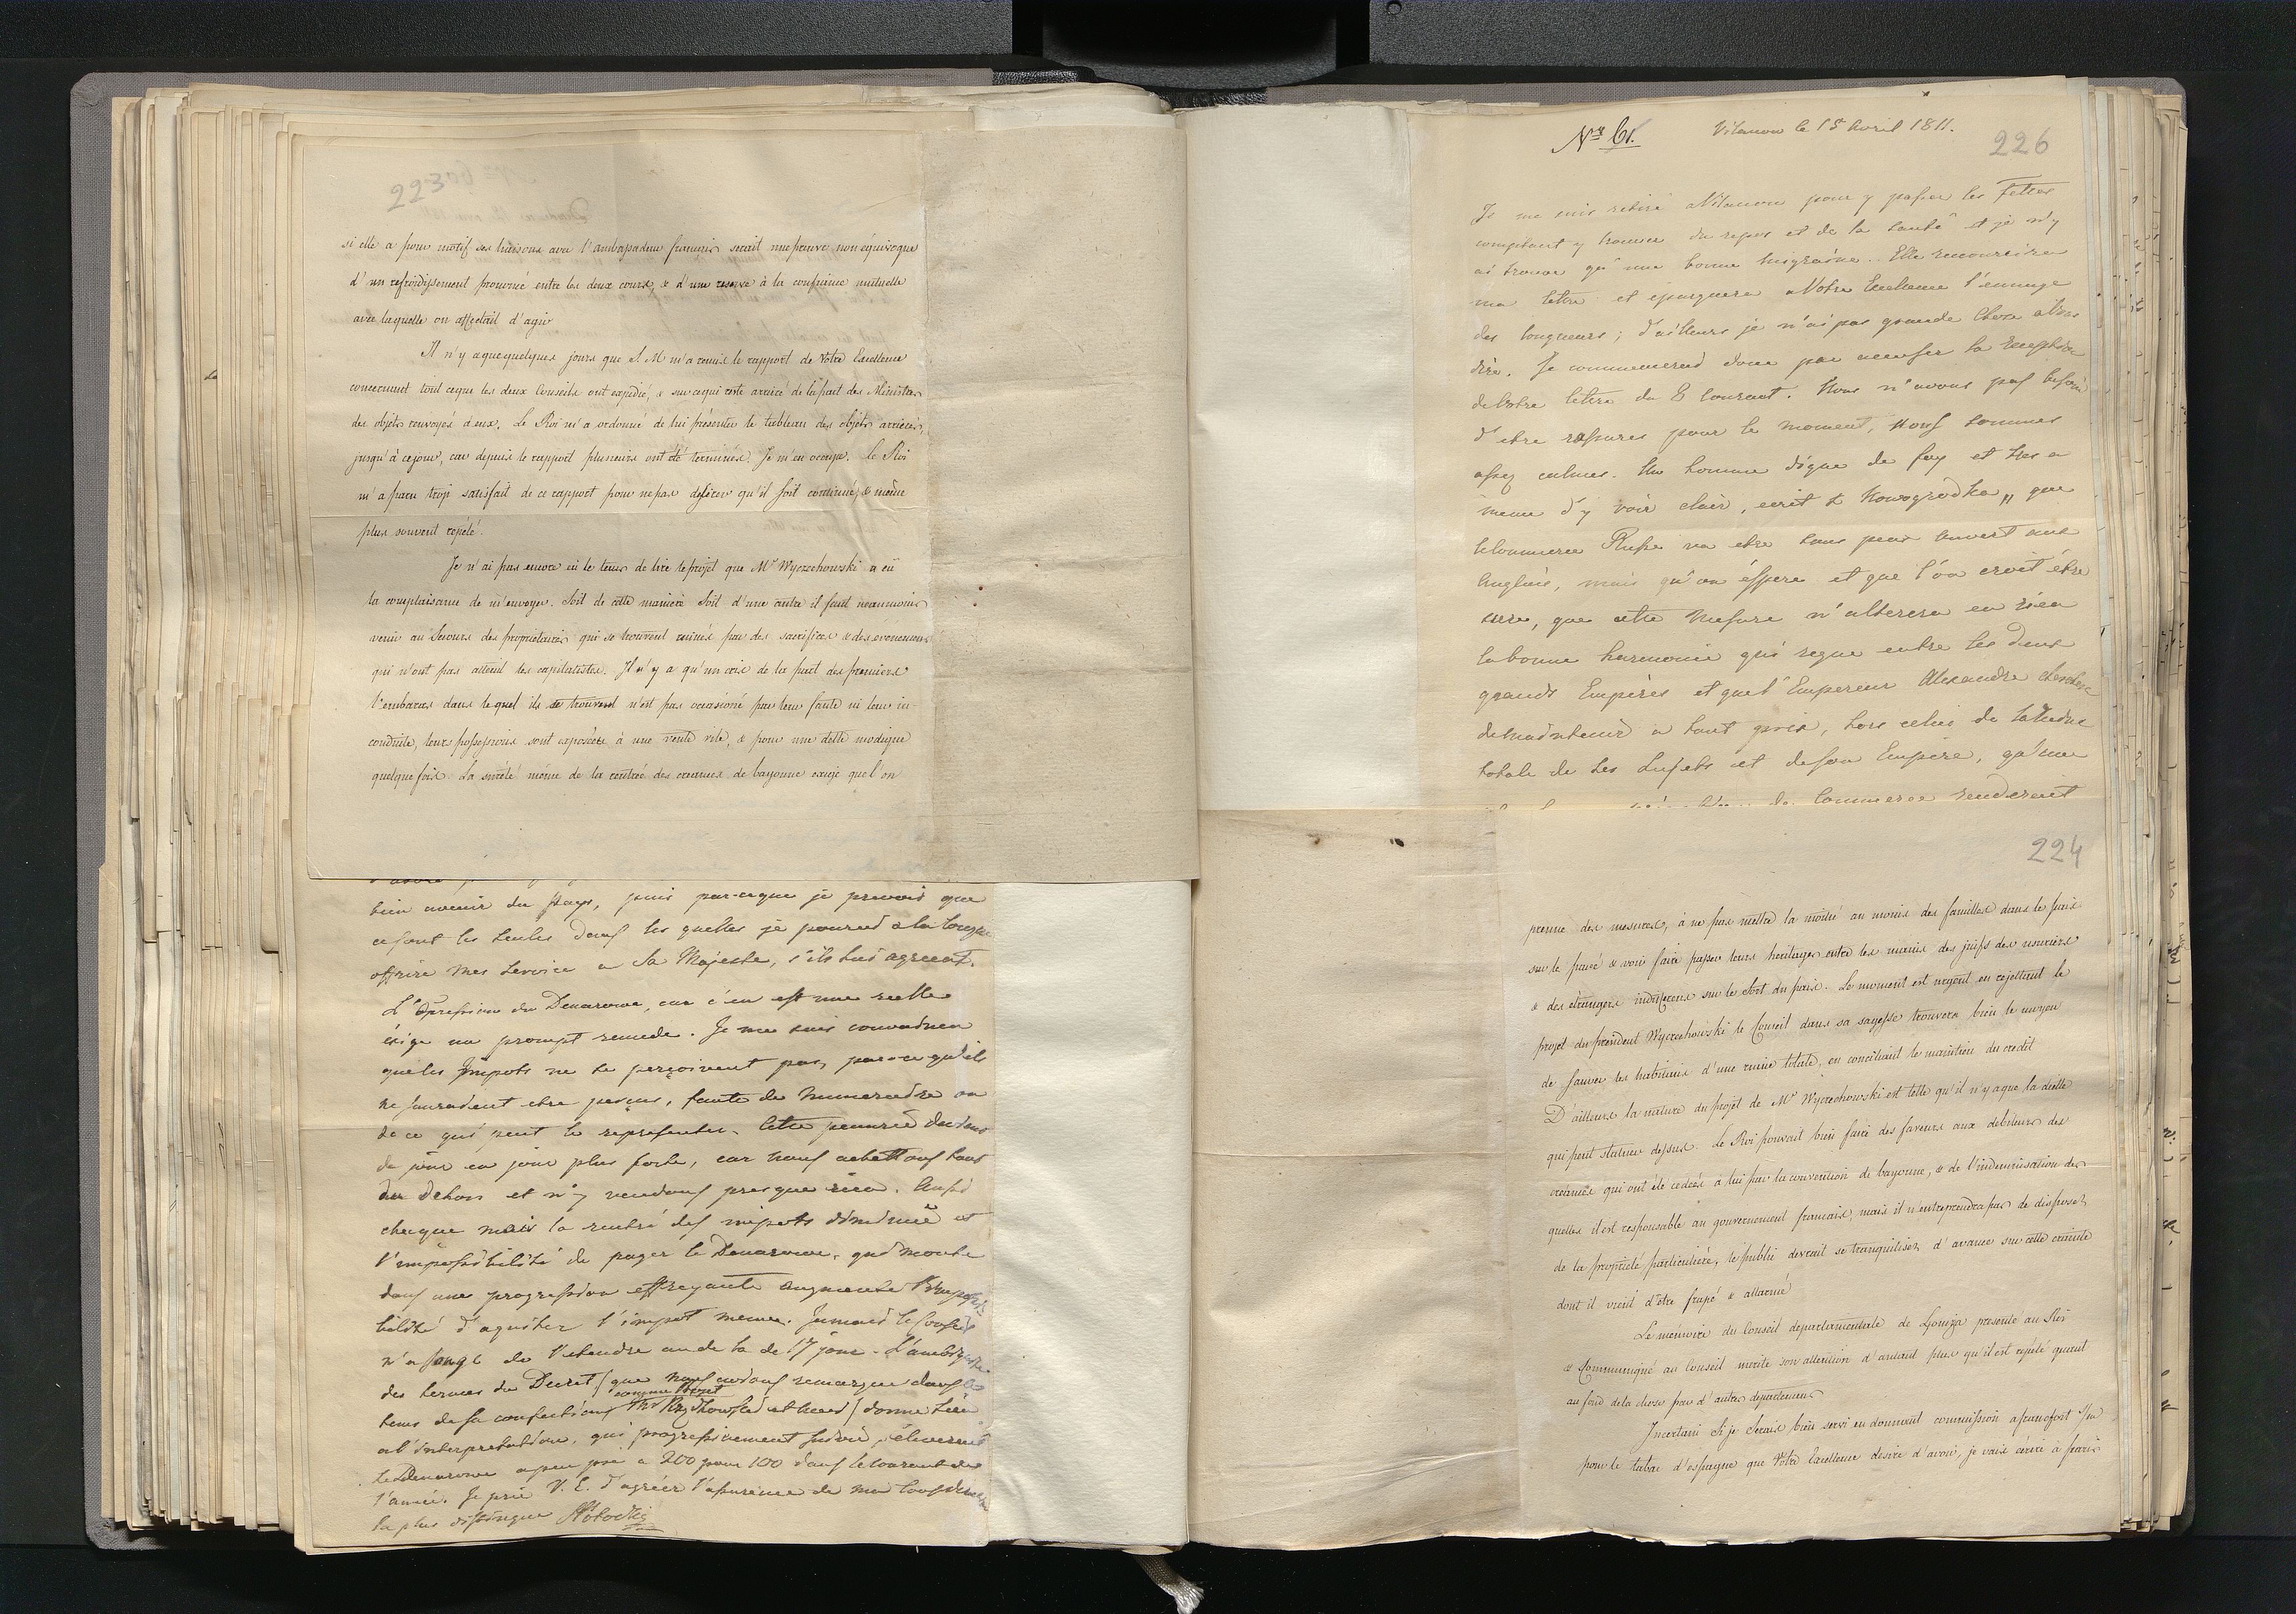 223
si elle a pour motif ses liaisons avec l'ambassadeur français serait une preuve non équivoque
d'un refroidissement prononcé entre les deux cours, & d'une reserve à la confiance mutuelle
avec laquelle on affectait d'agir
Il n'y a que quelques jours que S. M m'a remis le rapport de Votre Excellence
concernant tout ceque les deux Conseils ont expedié, & sur cequi reste arrieré de la part des Ministres
des objets renvoyés à eux. Le Roi m'a ordonné de lui présenter le tableau des objets arrierés,
jusqu'à cejour, car depuis le rapport plusieurs ont été terminés. Je m'en occupe. Le Roi
m'a paru trop satisfait de ce rapport pour nepas desirer qu'il soit continué, & même
plus souvent repété.
Je n'ai pas encore eù le tems de lire leprojet que Mr Wyczechowski a eù
la complaisance de m'envoyer. Soit de cette maniere soit d'une autre il faut neanmoins
venir au secours des proprietaires qui se trouvent ruinés par des sacrifices & des evenemens
qui n'ont pas atteint les capitalistes. Il n'y a qu'un cris de la part des premiers
l'embaras dans lequel ils se trouvent n'est pas occasioné par leur faute ni leur in-
conduite, leurs possessions sont exposées à une vente vile, & pour une dette modique
quelque fois. La sureté même de la rentrée des creances de bayonne exige que l'on
bien avenir du pays, puis par-ceque je prevois que
ce sont les seules dans les quelles je pourrai a la longue
offrire mes service a Sa Majeste, s'ils lui agreent.
L'Opression du Denarowe, car c'en est une reelle
exige un prompt remede. Je me suis convaincu
que les Impots ne se perçoivent pas, parce qu'ils
ne sauraient etre perçus, faute de Numeraire ou
de ce qui peut le representer. Cette penurie devient
de jour en jour plus forte, car nous achettons tout
du dehors et n'y vendons presque rien. Aussi
chaque mois la rentré des impots diminue et
l'impossibilité de payer le Denarowe, qui monte
dans une progression effrayante augmente l'impossi
bilité d'aquiter l'impot meme. Jamais le Conseil
n'a songé de l'etendre au de la de 17 jour. L'ambiguité
des termes du Decret (que nous avions remarque dans le
tems de sa confection
donne lieu
a l'interpretation, qui progressivement suivie, eleverait
le Denarowe a peu pres a 200 pour 100 dans le courant de
l'année. Je prie V. E. d'agréer l'assurance de ma Consideration
la plus distingue SPotocki
Nro 61. Vilanow le 15 Avril 1811.
226
Je me suis retiré a Vilanow pour y passer les fettes
comptant y trouver du repos et de la santé et je n'y
ai trouvé qu'une bonne migraine. Elle raccourcira
ma lettre et epargnera a Votre Excellence l'ennuye
des longueurs; d'ailleurs je n'ai pas grande Chose a Vous
dire. Je commencerai donc par accuser la reception
de Votre lettre du 8 courant. Nous n'avons pas besoin
d'etre rassures pour le moment, Nous sommes
assez calmes. Un homme digne de foy et tres a
meme d'y voir clair, ecrit de Nowogrodka „ que
le Commerce Russe va etre sous peu ouvert aux
Anglais, mais qu'on espere et que l'on croit être
sure, que cette Mesure n'alterera en rien
la bonne harmonie qui regne entre les deux
grands Empires et que l'Empereur Alexandre cherchera
demaintenir a tout prix, hors celui de la Ruine
totale de ses sujets et de son Empire, qu'une
Commerce renderait
224
prenne des mesures, à ne pas mettre la moitié au moins des familles dans le païs
sur le pavé & voir faire passer leurs heritages entre les mains des juifs des usuriers
& des étrangers indifferens sur le sort du païs. Le moment est urgent en rejettant le
projet du president Wyczechowski le Conseil dans sa sagesse trouvera bien le moyen
de sauver les habitans d'une ruine totale, en conciliant le maintien du credit
D'ailleurs la nature du projet de Mr Wyczechowski est telle qu'il n'y a que la diette
qui peut statuer dessus. Le Roi pouvait bien faire des faveurs aux debiteurs des
créances qui ont été cedées à lui par la convention de bayonne, & de l'indemnisation des
quelles il est responsable au gouvernement francais, mais il n'entreprendra pas de disposer
de la propriété particuliere, le public devrait se tranquiliser d'avance sur cette crainte
dont il vient d'être frapé & allarmé
Le mémoire du Conseil departementale de Łomza presenté au Roi
& Communiqué au Conseil merite son attention d'autant plus qu'il est repété quant
au fond de la chose par d'autres departemens
Incertain si je serais bien servi en donnant commission a francfort s/m
pour le tabac d'espagne que Votre Excellence desire d'avoir, je vais écrire à paris